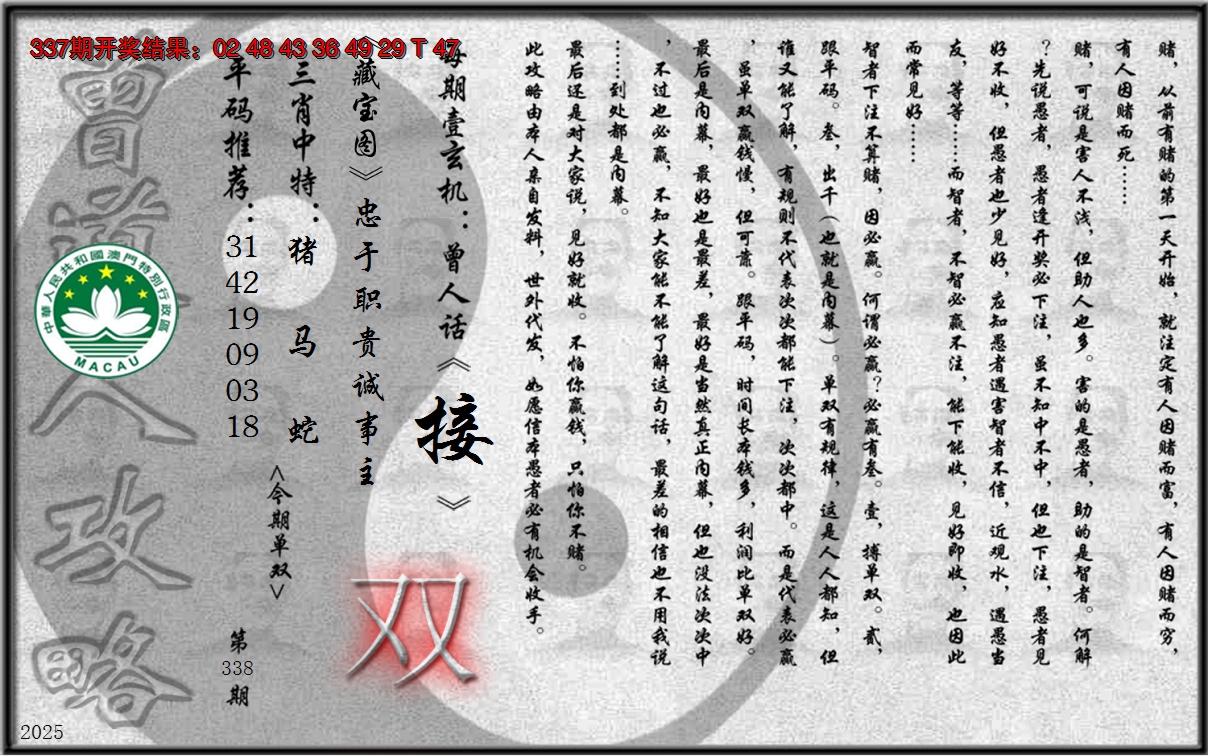 337期开奖结果：02 48 43 36 49 29 T 47
赌，从前有赌的第一天开始，就注定有人因赌而富，有人因赌而穷，
有人因赌而死……
赌，可说是害人不浅，但助人也多。害的是愚者，助的是智者。何解
？先说愚者，愚者逢开奖必下注，虽不知中不中，但也下注，愚者见
好不收，但愚者也少见好，应知愚者遇害智者不信，近观水，遇愚当
友，等等……而智者，不智必赢不注，能下能收，见好即收，也因此
而常见好……
智者下注不算赌，因必赢。何谓必赢？必赢有叁。壹，搏单双。贰，
跟平码。叁，出千（也就是内幕）。单双有规律，这是人人都知，但
谁又能了解，有规则不代表次次都能下注，次次都中。而是代表必赢
，虽单双赢钱慢，但可靠。跟平码，时间长本钱多，利润比单双好。
最后是内幕，最好也是最差，最好是当然真正内幕，但也没法次次中
，不过也必赢，不知大家能不能了解这句话，最差的相信也不用我说
……到处都是内幕。
最后还是对大家说，见好就收。不怕你赢钱，只怕你不赌。
此攻略由本人亲自发料，世外代发，如愿信本愚者必有机会收手。
每期壹玄机：曾人话《接》
《藏宝图》忠于职贵诚事主
双
三肖中特：猪 马 蛇
<今期单双>
平码推荐：31 42 19 09 03 18
第338期
曾道人攻略
中華人民共和國澳門特別行政區
MACAU
2025